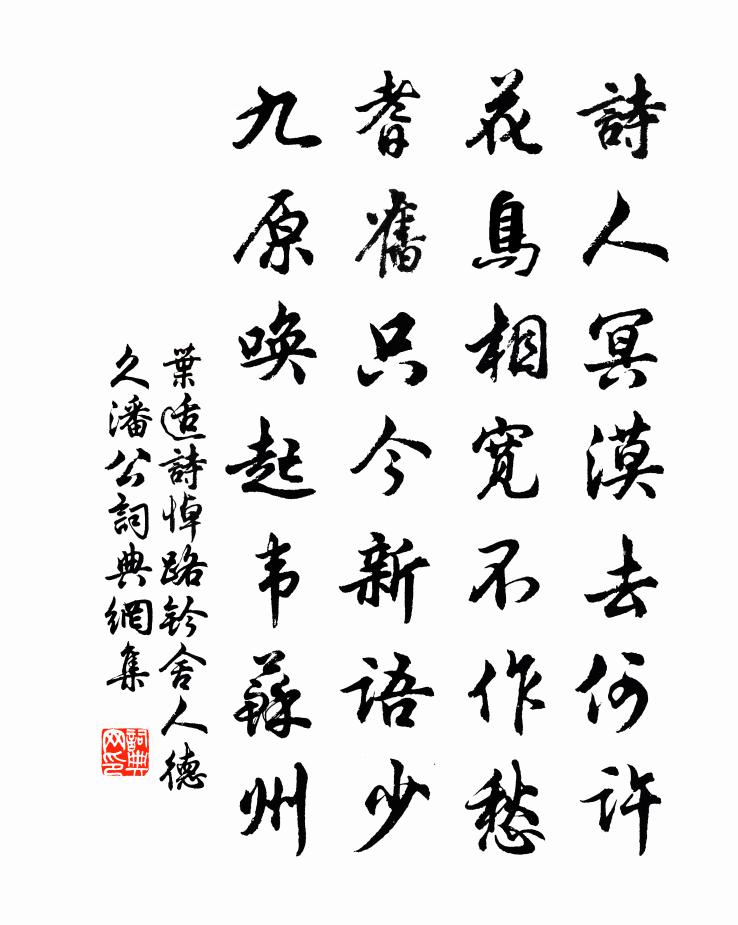 詩人冥漠去何許
花鳥相寬不作愁
耆舊只今新語少
九原喚起韦蘇州
葉适詩悼路鈐舍人德
久潘公詞典網集
詞典网印